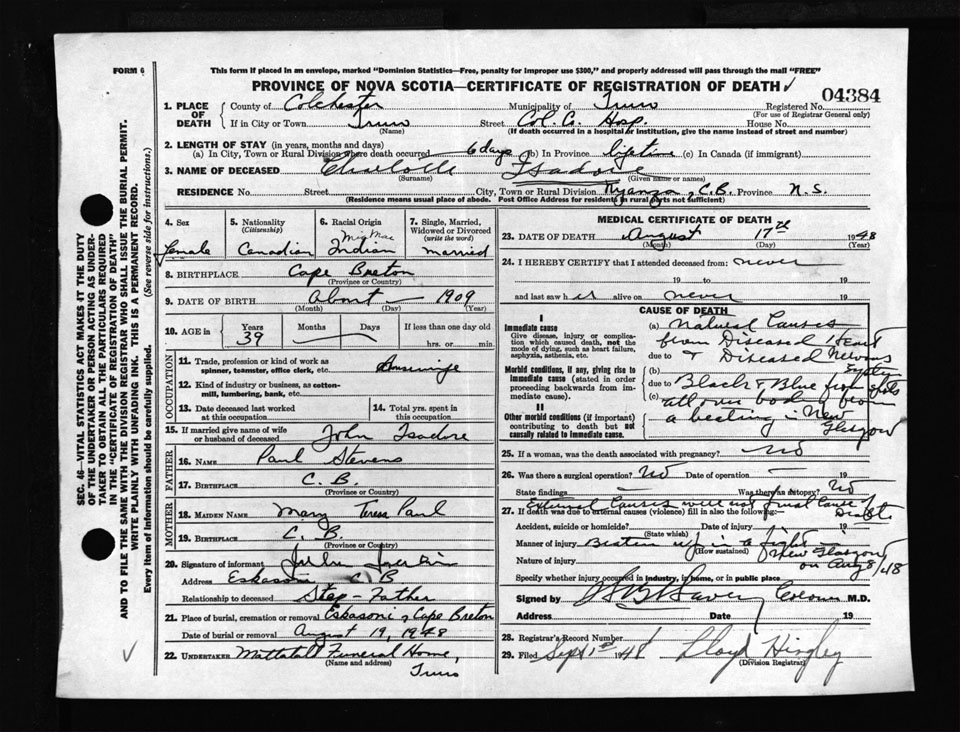 FORM 6
This form if placed in an envelope, marked "Dominion Statistics—Free, penalty for improper use $300," and properly addressed will pass through the mail "FREE"
PROVINCE OF NOVA SCOTIA—CERTIFICATE OF REGISTRATION OF DEATH
04384
1. PLACE OF DEATH
County of Colchester Municipality of Truro Registered No.
(For use of Registrar General only)
If in City or Town Truro Street Col. Co. Hosp. House No.
(Name) (If death occurred in a hospital or institution, give the name instead of street and number)
2. LENGTH OF STAY (in years, months and days)
(a) In City, Town or Rural Division where death occurred 6 days (b) In Province lifetime (c) In Canada (if immigrant)
3. NAME OF DECEASED Charlotte Isadore
(Surname) (Given name or names)
RESIDENCE No. Street City, Town or Rural Division Nyanza, C.B. Province N.S.
(Residence means usual place of abode. Post Office Address for residents in rural parts not sufficient)
4. Sex 5. Nationality (Citizenship) 6. Racial Origin 7. Single, Married, Widowed or Divorced (write the word)
female Canadian Mic Mac Indian married
8. BIRTHPLACE Cape Breton
(Province or Country)
9. DATE OF BIRTH About — 1909
(Month) (Day) (Year)
10. AGE in Years Months Days If less than one day old
39 hrs. or min.
OCCUPATION
11. Trade, profession or kind of work as spinner, teamster, office clerk, etc. Housewife
12. Kind of industry or business, as cotton-mill, lumbering, bank, etc.
13. Date deceased last worked at this occupation
14. Total yrs. spent in this occupation
15. If married give name of wife or husband of deceased John Isadore
FATHER
16. NAME Paul Stevens
17. BIRTHPLACE C. B.
(Province or Country)
MOTHER
18. MAIDEN NAME Mary Teresa Paul
19. BIRTHPLACE C. B.
(Province or Country)
20. Signature of informant
Address Eskasoni C B
Relationship to deceased Step-Father
21. Place of burial, cremation or removal Eskasoni, Cape Breton
Date of burial or removal August 19, 1948
22. UNDERTAKER Mattatall Funeral Home,
(Name and address) Truro
MEDICAL CERTIFICATE OF DEATH
23. DATE OF DEATH August 17th 1948
(Month) (Day) (Year)
24. I HEREBY CERTIFY that I attended deceased from: never
19 to 19
and last saw her alive on never 19
CAUSE OF DEATH
I
Immediate cause
Give disease, injury or complication which caused death, not the mode of dying, such as heart failure, asphyxia, asthenia, etc.
(a) Natural Causes
from Diseased Heart
due to & Diseased Nervous
System
Morbid conditions, if any, giving rise to immediate cause (stated in order proceeding backwards from immediate cause).
(b)
due to Black & Blue from spots
(c) all over body from
II
Other morbid conditions (if important) contributing to death but not causally related to immediate cause.
a beating in New
Glasgow
25. If a woman, was the death associated with pregnancy? No
26. Was there a surgical operation? No Date of operation — 19
State findings — Was there an autopsy? No
External Causes were not final cause of Death
27. If death was due to external causes (violence) fill in also the following:—
Accident, suicide or homicide? Date of injury 19
(State which)
Manner of injury Beaten up in a fight in
(How sustained) New Glasgow
Nature of injury on Aug 8/48
Specify whether injury occurred in industry, in home, or in public place
Signed by Coroner M.D.
Address Date 19
28. Registrar's Record Number
29. Filed Sept 1st 1948 Lloyd Hingley
(Division Registrar)
SEC. 46—VITAL STATISTICS ACT MAKES IT THE DUTY
OF THE UNDERTAKER OR PERSON ACTING AS UNDER-
TAKER TO OBTAIN ALL THE PARTICULARS REQUIRED
IN THE "CERTIFICATE OF REGISTRATION OF DEATH"
AND TO FILE THE SAME WITH THE DIVISION REGISTRAR WHO SHALL ISSUE THE BURIAL PERMIT.
WRITE PLAINLY WITH UNFADING INK. THIS IS A PERMANENT RECORD.
Every item of information should be carefully supplied. (See reverse side for instructions.)